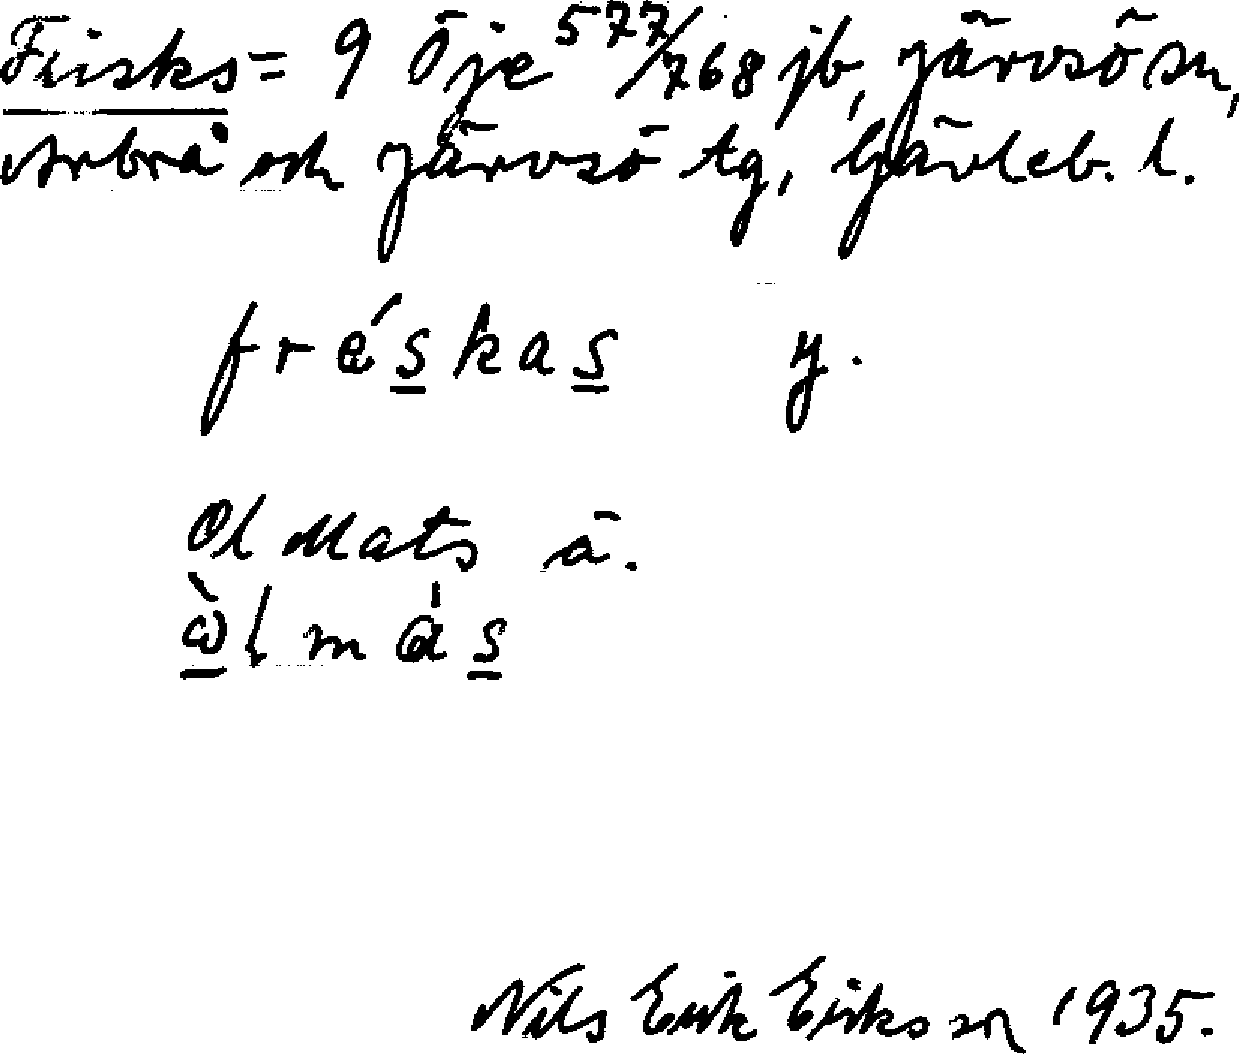 Frisks = 9 Öje 577/768 jb, Järvsö sn,
Arbrå och Järvsö tg, Gävleb. l.
fréskas y.
Ol Mats ä.
ὼlmás
Nils Erik Eriksson 1935.